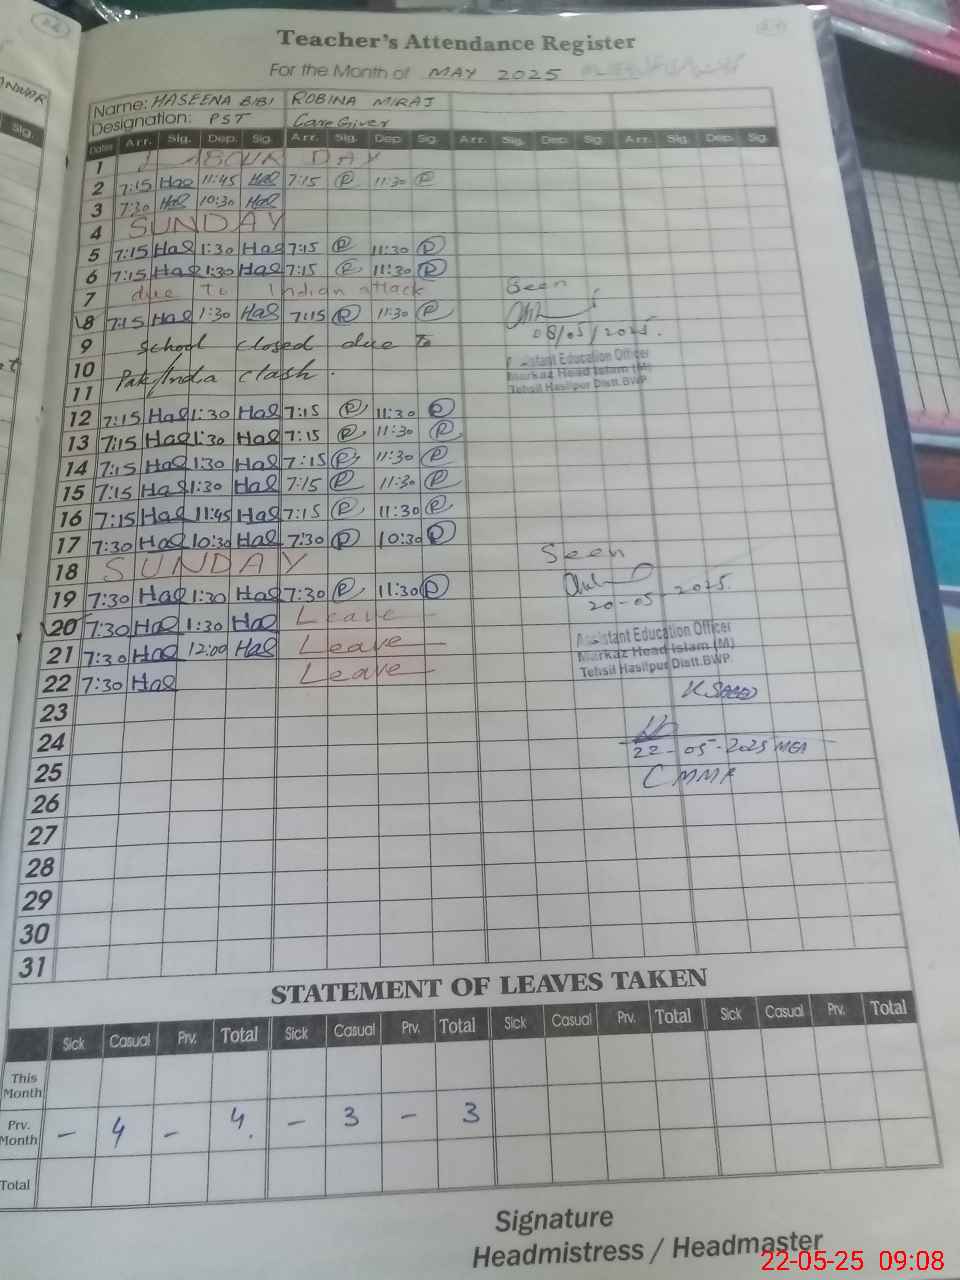 Teacher's Attendance Register
For the Month of MAY 2025
Name: HASEENA BIBI ROBINA MIRAJ
Designation: PST Care Giver
Dates Arr. Sig. Dep. Sig. Arr. Sig. Dep. Sig. Arr. Sig. Dep. Sig. Arr. Sig. Dep. Sig.
1 LABOUR DAY
2 7:15 Has 11:45 Has 7:15 R 11:30 R
3 7:30 Has 10:30 Has
4 SUNDAY
5 7:15 Has 1:30 Has 7:15 R 11:30 R
6 7:15 Has 1:30 Has 7:15 R 11:30 R
7 due to Indian attack
Seen
8 7:15 Has 1:30 Has 7:15 R 11:30 R
08/05/2025.
9 School closed due to
10 Pak/India clash.
11
Assistant Education Officer
Markaz Head Islam (M)
Tehsil Hasilpur Distt.BWP
12 7:15 Has 1:30 Has 7:15 R 11:30 R
13 7:15 Has 1:30 Has 7:15 R 11:30 R
14 7:15 Has 1:30 Has 7:15 R 11:30 R
15 7:15 Has 1:30 Has 7:15 R 11:30 R
16 7:15 Has 11:45 Has 7:15 R 11:30 R
17 7:30 Has 10:30 Has 7:30 R 10:30 R
18 SUNDAY
Seen
19 7:30 Has 1:30 Has 7:30 R 11:30 R
20-05-2025.
20 7:30 Has 1:30 Has Leave
21 7:30 Has 12:00 Has Leave
22 7:30 Has Leave
Assistant Education Officer
Markaz Head Islam (M)
Tehsil Hasilpur Distt.BWP.
23
24
22-05-2025 MEA
25
26
27
28
29
30
31
STATEMENT OF LEAVES TAKEN
Sick Casual Prv. Total Sick Casual Prv. Total Sick Casual Prv. Total Sick Casual Prv. Total
This Month
Prv. Month - 4 - 4. - 3 - 3
Total
Signature
Headmistress / Headmaster
22-05-25 09:08